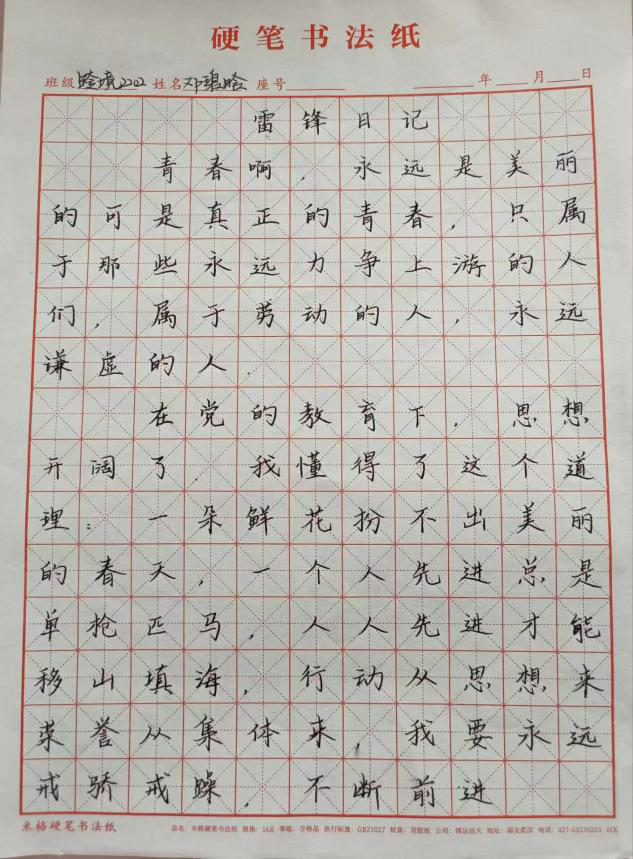 硬笔书法纸
班级 跨境2202 姓名 邓碧晗 座号 年 月 日
雷锋日记
青春啊,永远是美丽
的可是真正的青春,只属
于那些永远力争上游的人
们,属于劳动的人,永远
谦虚的人.
在党的教育下,思想
开阔了.我懂得了这个道
理:一朵鲜花扮不出美丽
的春天,一个人先进总是
单枪匹马,人人先进才能
移山填海,行动从思想来
荣誉从集体来,我要永远
戒骄戒躁,不断前进
米格硬笔书法纸 品名:米格硬笔书法纸 规格:16K 等级:合格品 执行标准:GB21027 材质:双胶纸 公司:鸿运远大 地址:湖北武汉 电话:027-63370203 HX